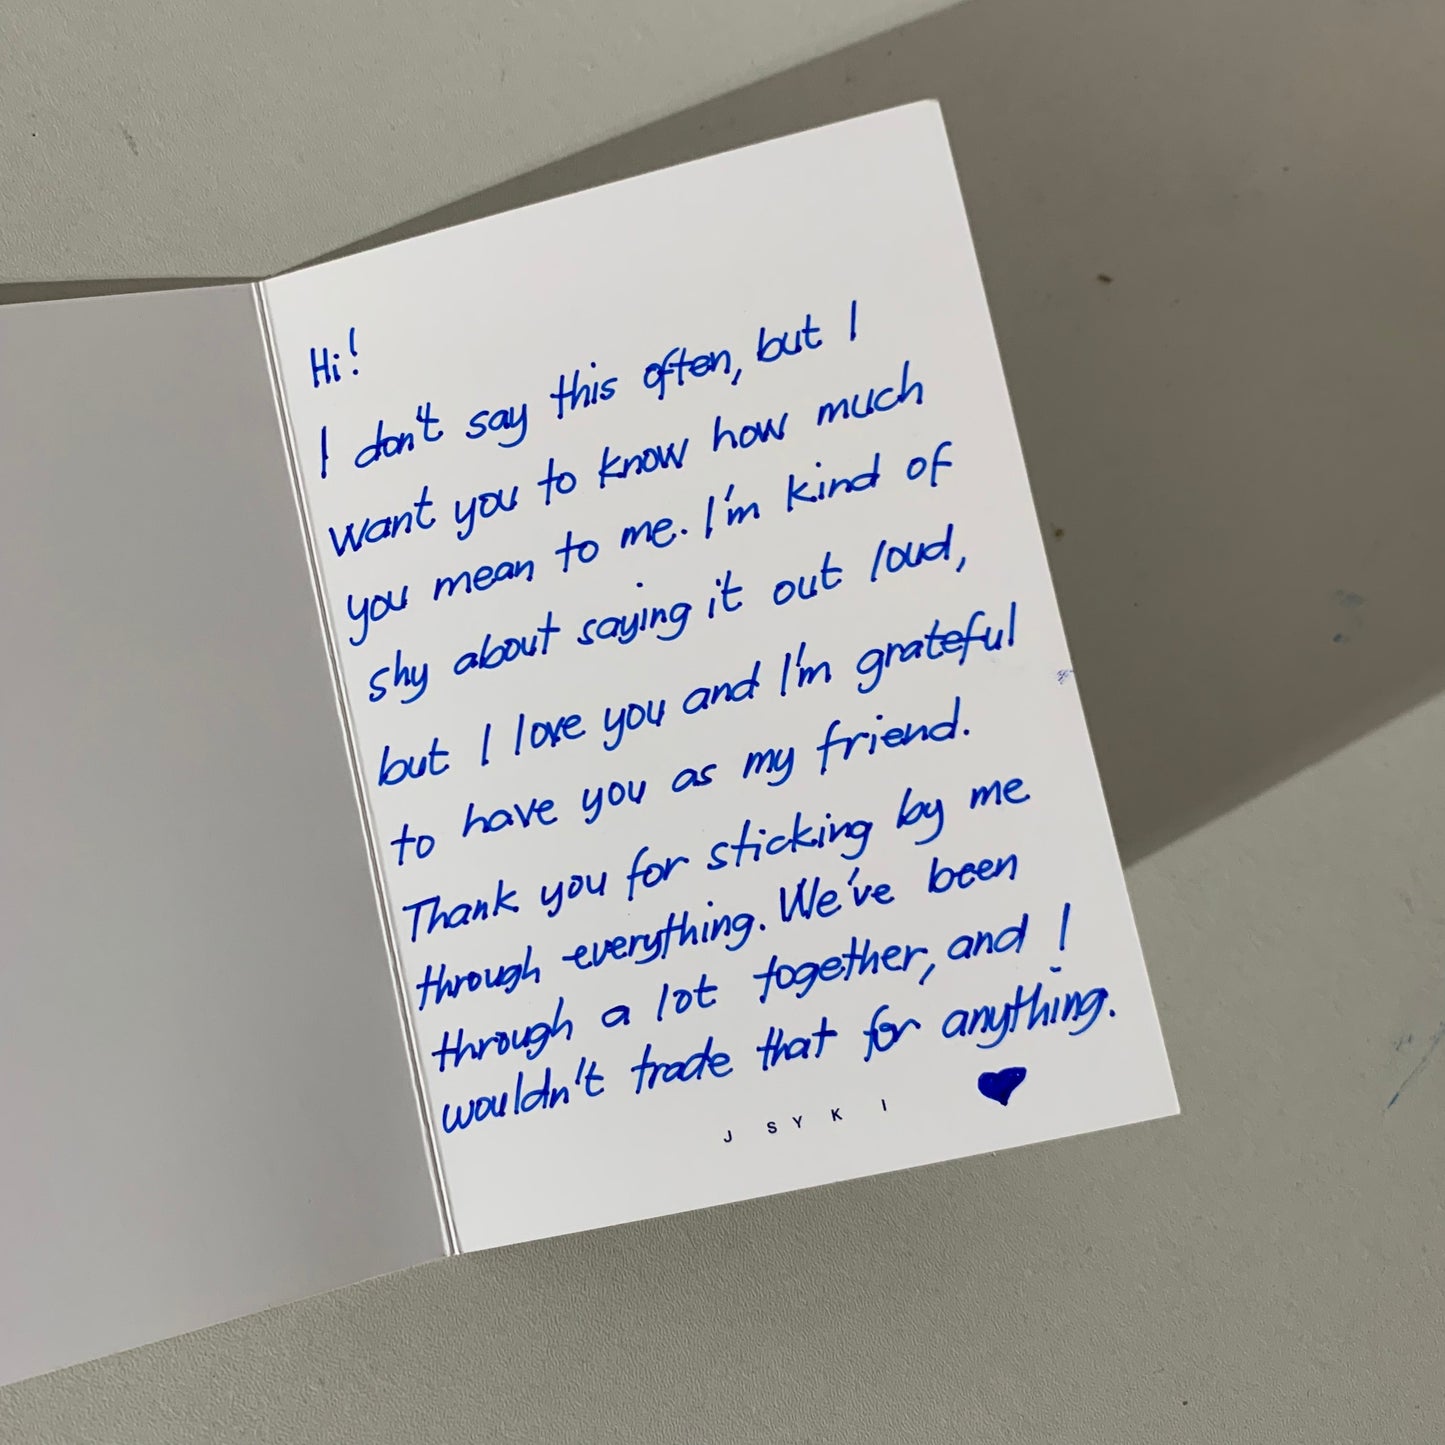 Hi!
I don't say this often, but I
want you to know how much
you mean to me. I'm kind of
shy about saying it out loud,
but I love you and I'm grateful
to have you as my friend.
Thank you for sticking by me
through everything. We've been
through a lot together, and I
wouldn't trade that for anything.
J SYKI